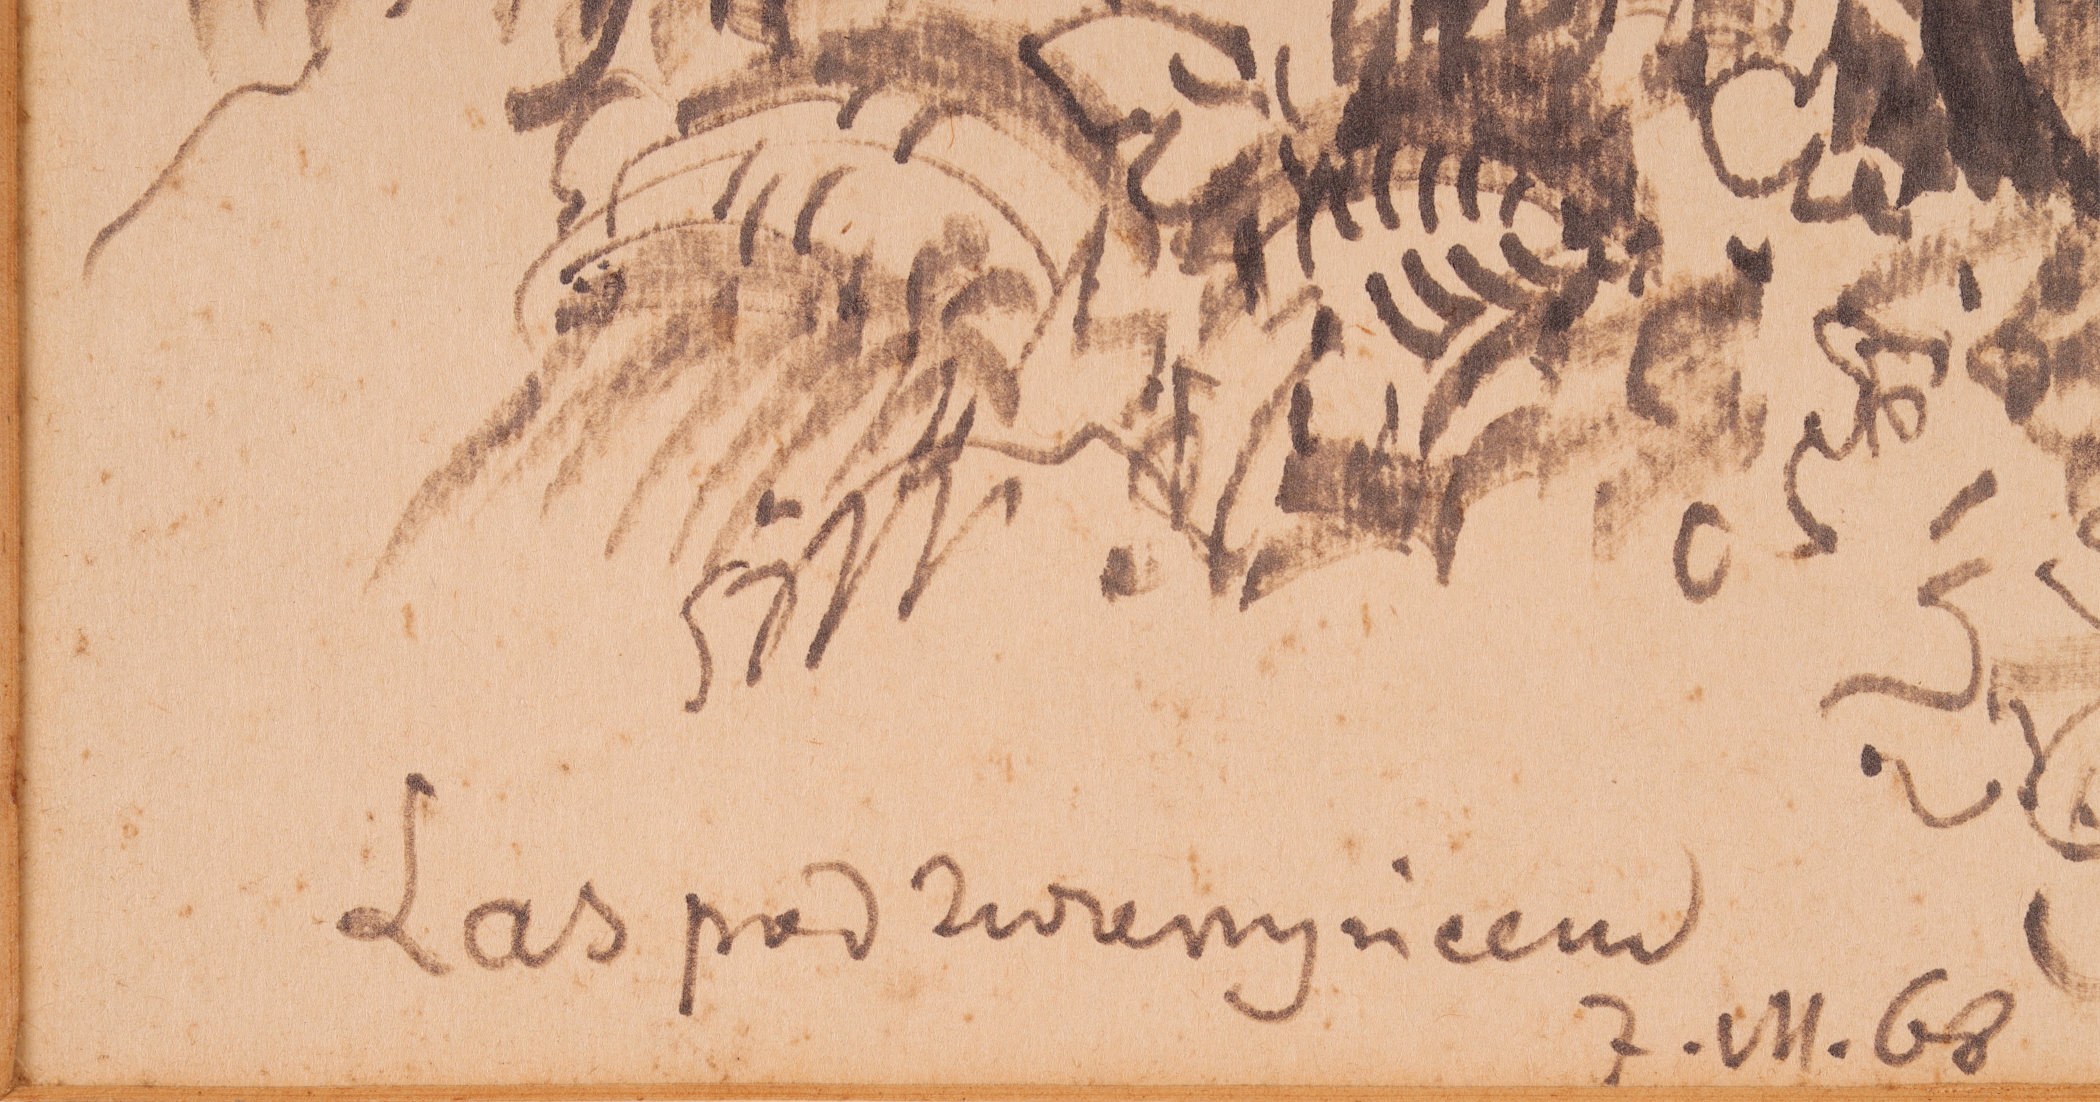 Las pod Zwierzyńcem
7.VII.68